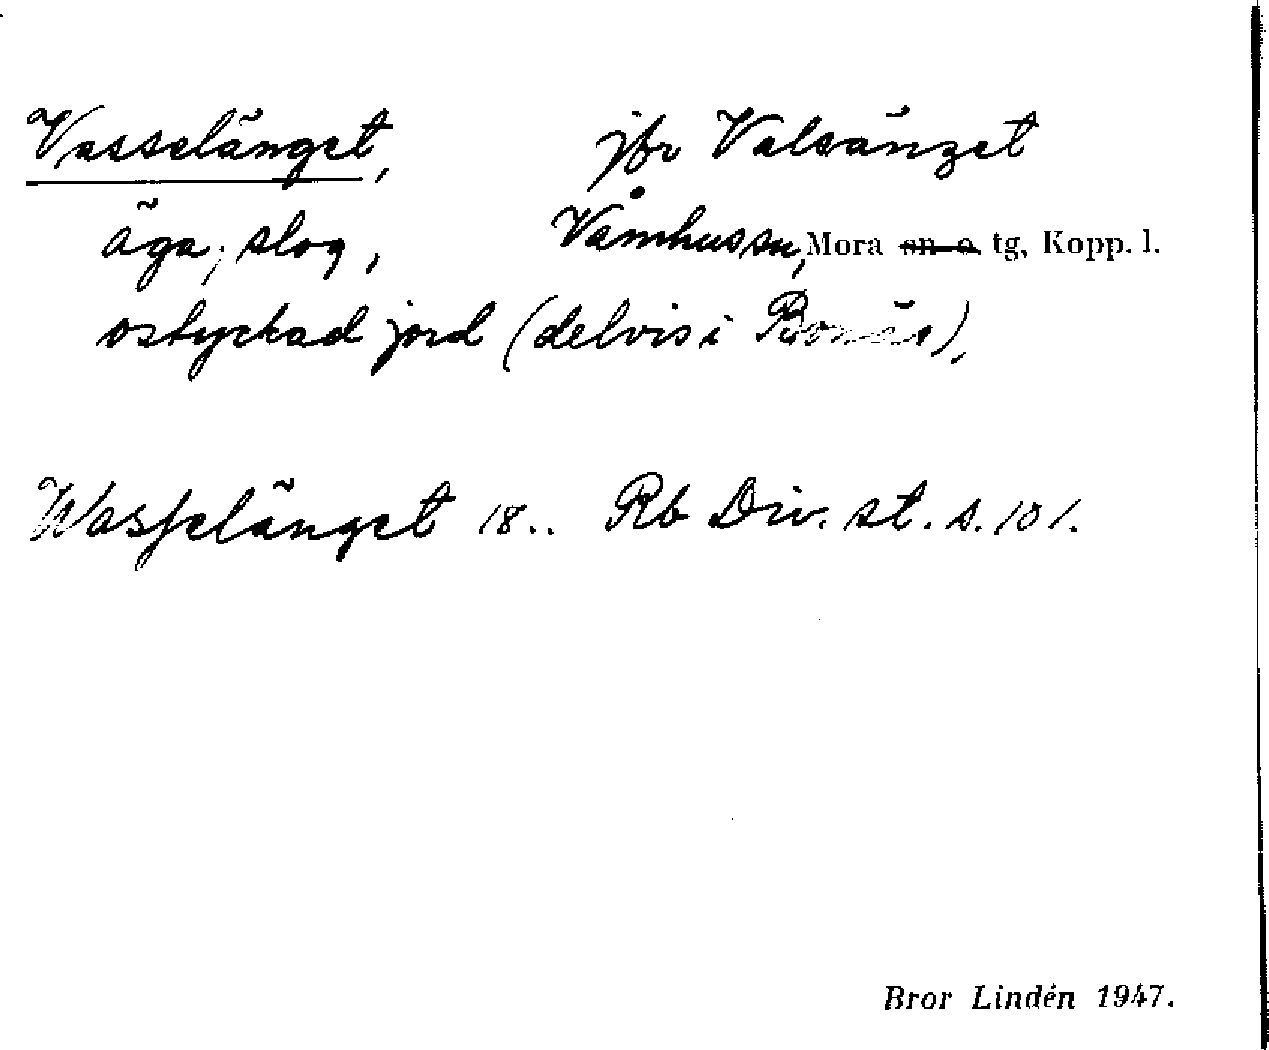 Vasselänget, jfr Valsänget
äga; slog, Våmhus sn, Mora sn o. tg, Kopp. l.
ostyckad jord (delvis i Bonäs),
Wasselänget 18.. Rb Div. st. s. 101.
Bror Lindén 1947.